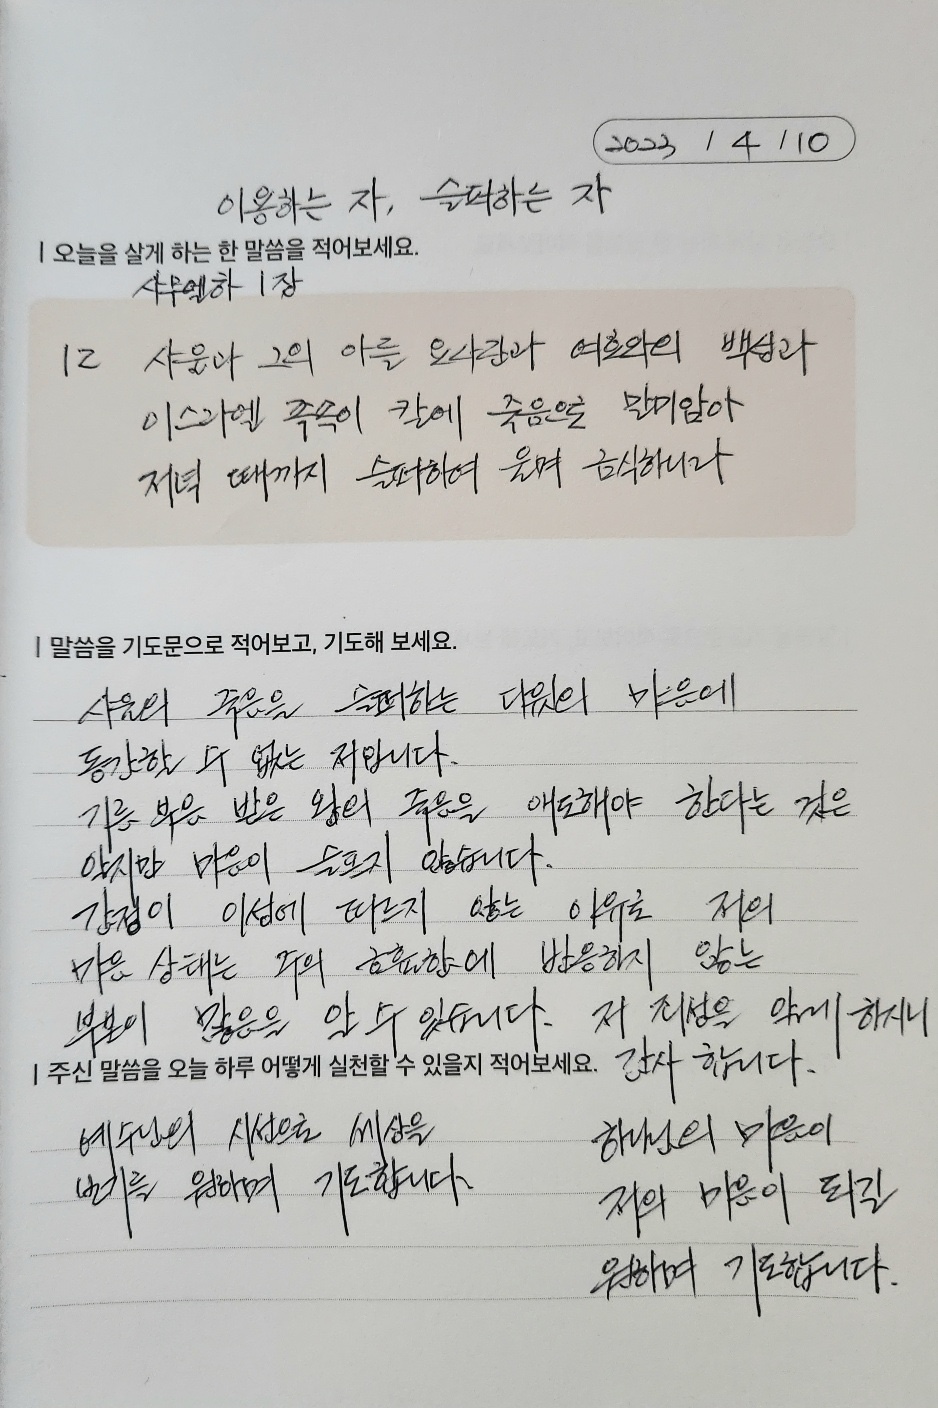 2023 / 4 / 10
이용하는 자, 슬퍼하는 자
| 오늘을 살게 하는 한 말씀을 적어보세요.
사무엘하 1장
12 사울과 그의 아들 요나단과 여호와의 백성과
이스라엘 족속이 칼에 죽음으로 말미암아
저녁 때까지 슬퍼하여 울며 금식하니라
| 말씀을 기도문으로 적어보고, 기도해 보세요.
사울의 죽음을 슬퍼하는 다윗의 마음에
동감할 수 없는 저입니다.
기름 부음 받은 왕의 죽음을 애도해야 한다는 것은
알지만 마음이 슬프지 않습니다.
감정이 이성에 따르지 않는 이유로 저의
마음 상태는 주의 합에 반응하지 않는
부분이 많음을 알 수 있습니다. 저 자신을 알게 하시니
감사 합니다.
| 주신 말씀을 오늘 하루 어떻게 실천할 수 있을지 적어보세요.
예수님의 시선으로 세상을
보기를 원하며 기도합니다.
하나님의 마음이
저의 마음이 되길
원하며 기도합니다.